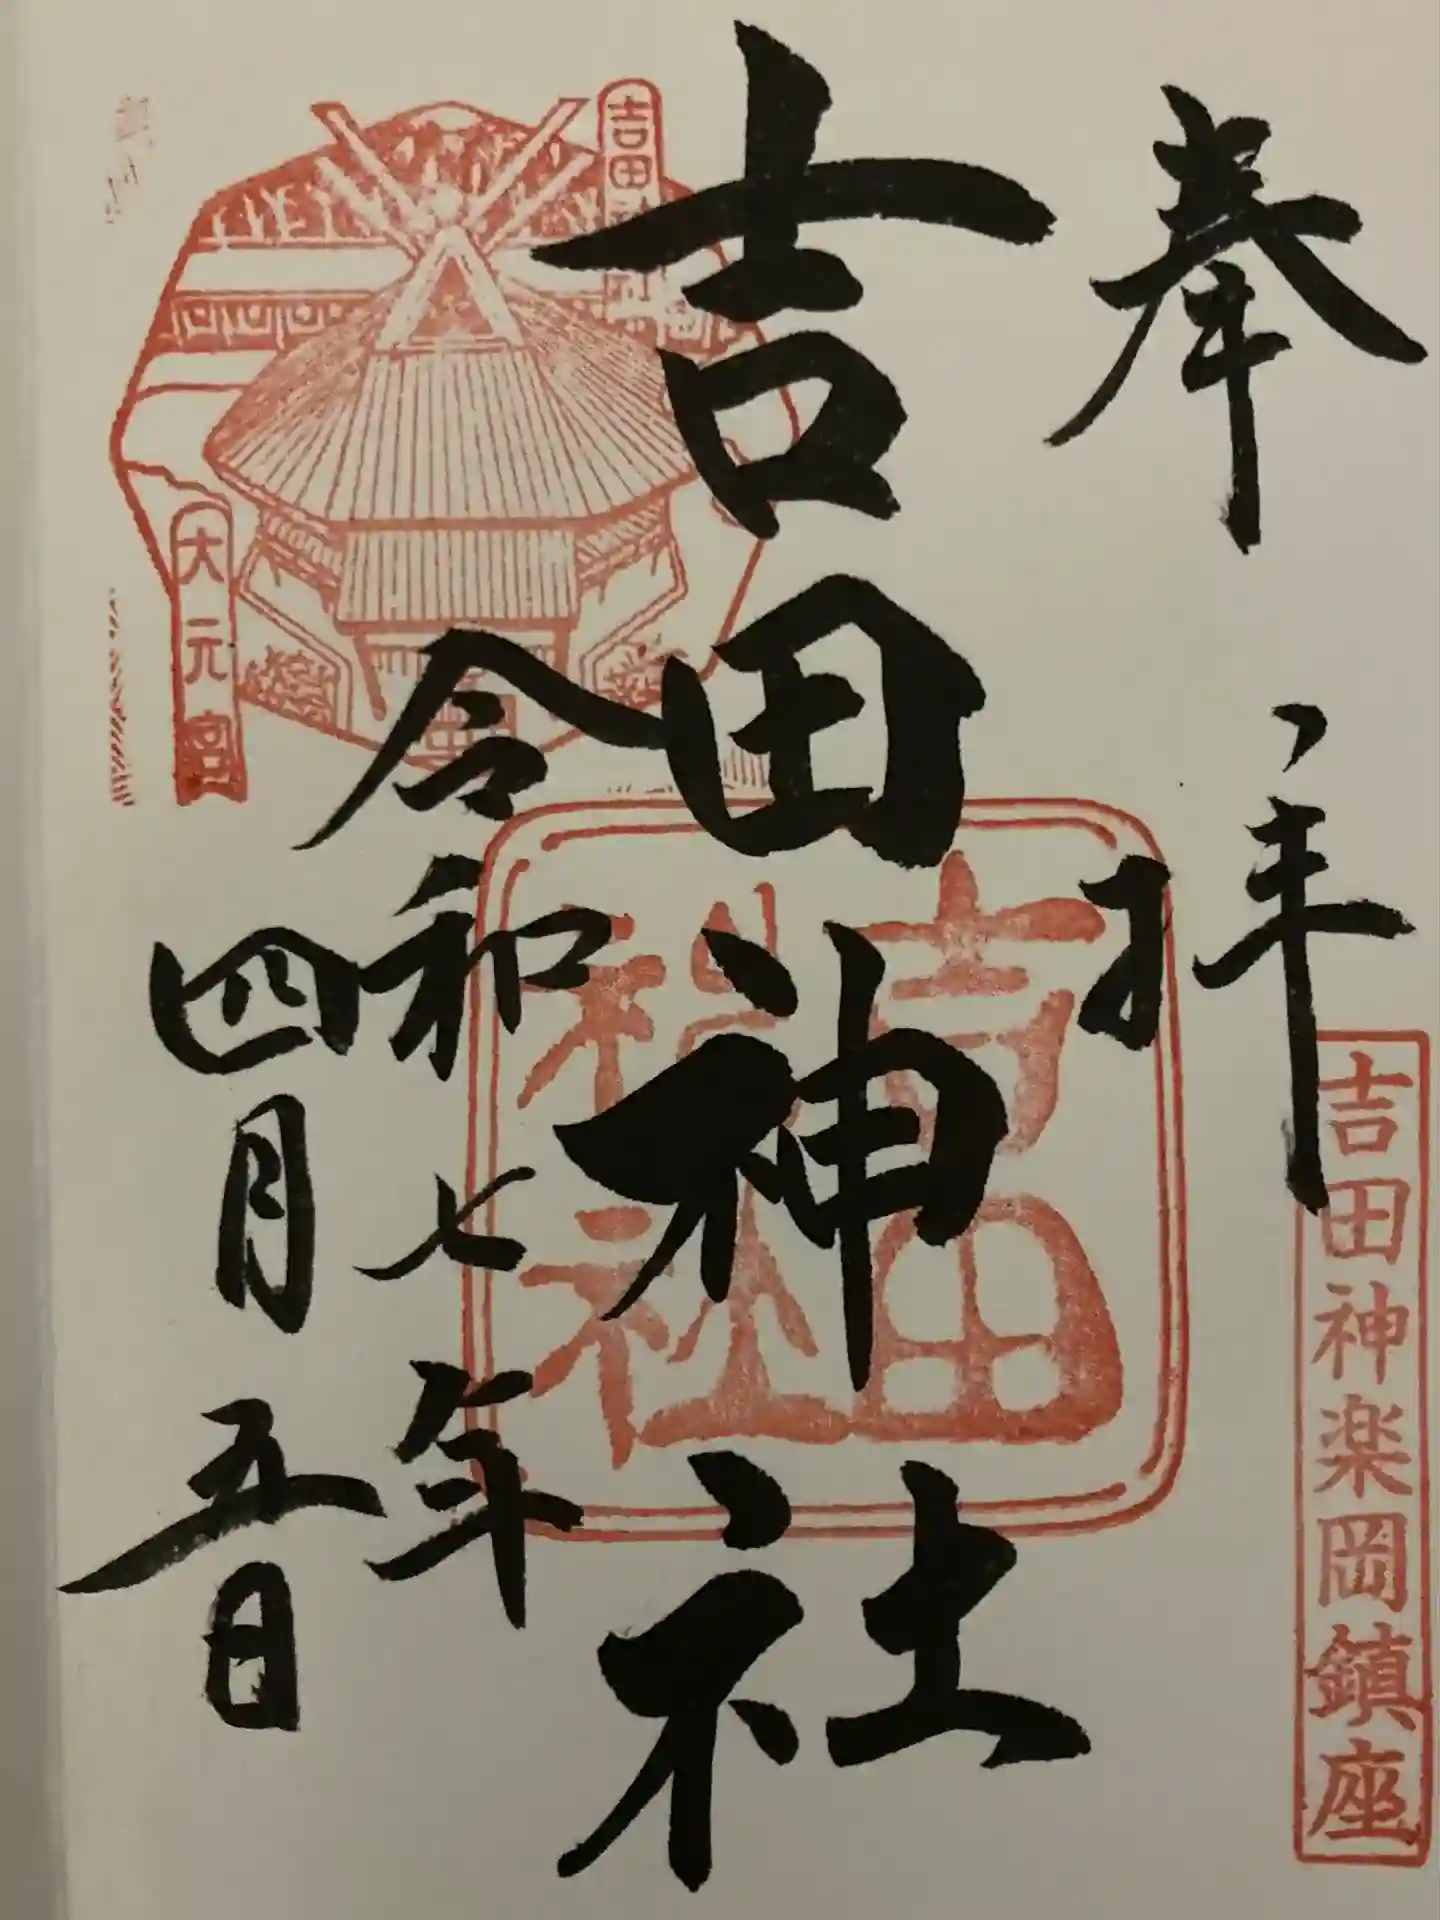 奉拝
吉田神楽岡鎮座
吉田神社
吉田神社
令和七年
四月五日
吉田神社
大元宮